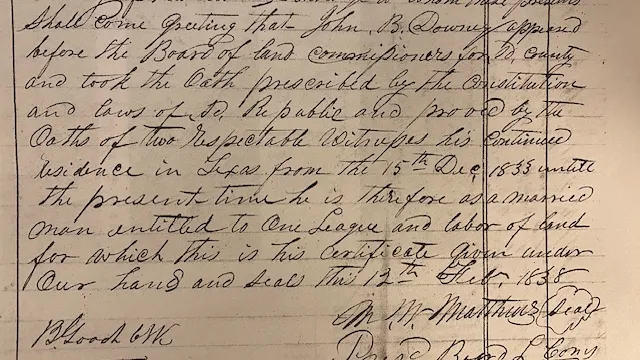 these presents
Shall come greeting that John B. Downey appeared
before the Board of land commissioners for Sd, county
and took the Oath prescribed by the constitution
and laws of Sd, Republic and proved by the
Oaths of two respectable Witnesses his continued
residence in Texas from the 15th Dec, 1833 untill
the present time he is therefore as a married
man entitled to One League and labor of land
for which this is his certificate given under
Our hand and seals this 12th Feb, 1838
M. W. Matthews (Seal)
B Gooch Clk
Board L Com